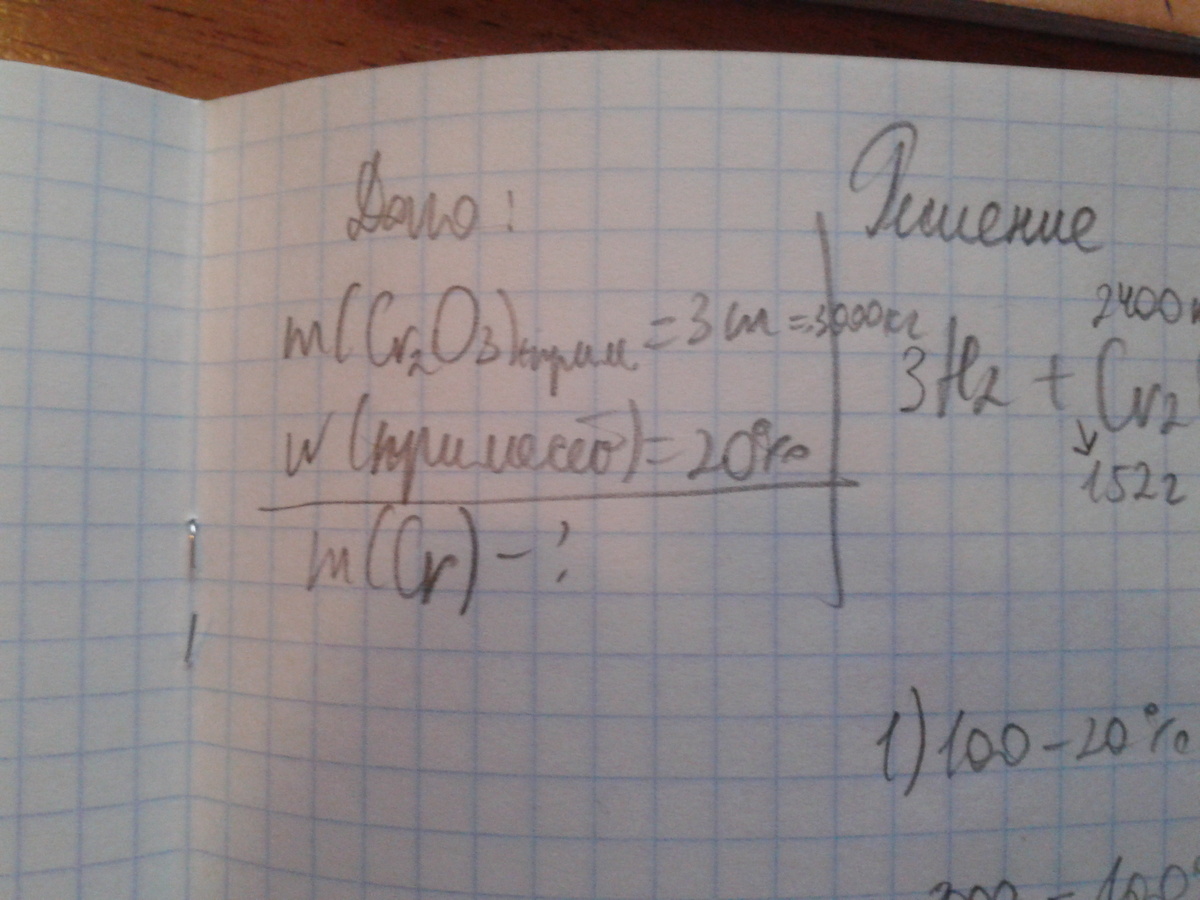 Дано:
m(Cr₂O₃)прим = 3т = 3000кг
w(примесей) = 20%
m(Cr) - ?
Решение
2400к
3H₂ + Cr₂
152г
1) 100 - 20%